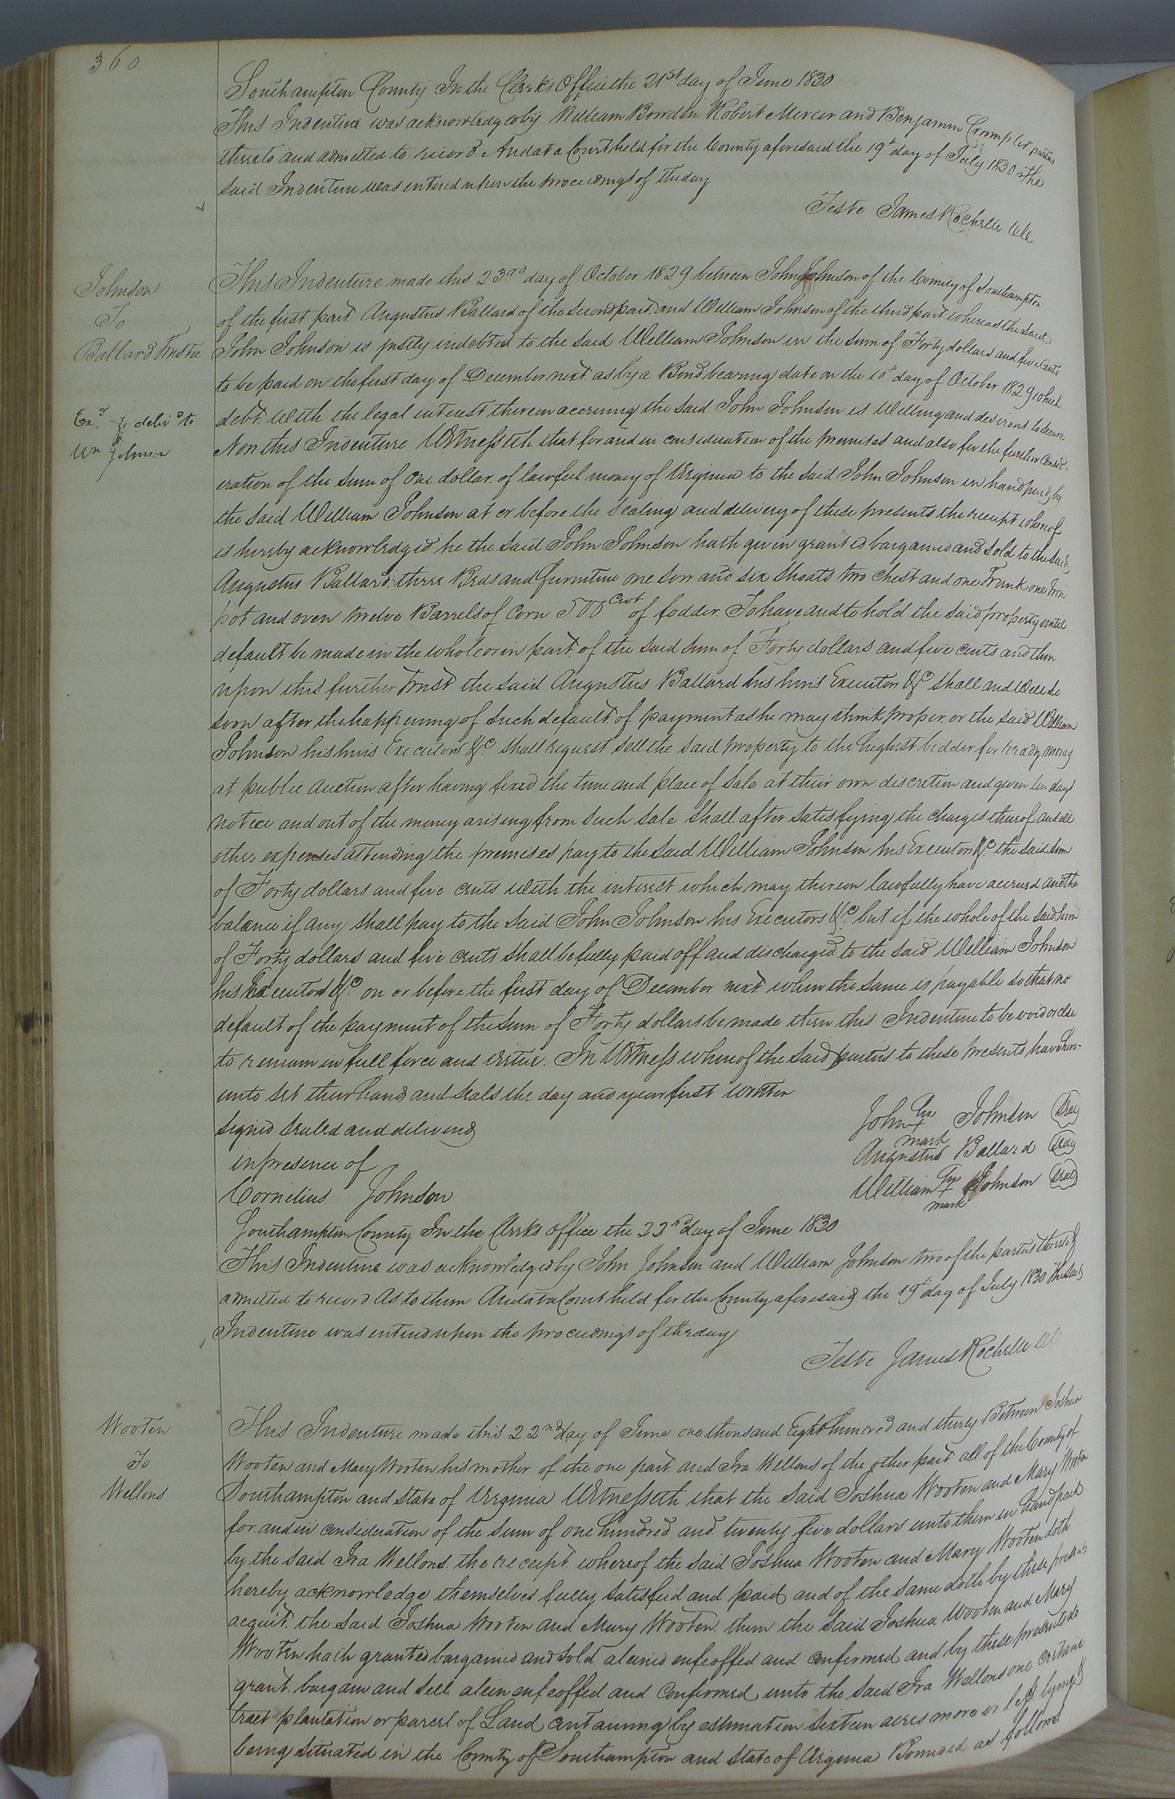 360
Southampton County In the Clerks Office the 21st day of June 1830
This Indenture was acknowledged by William Bowden Robert Mercer and Benjamin Crumpler parties
thereto and admitted to record And at a Court held for the County aforesaid the 19th day of July 1830 the
said Indenture was entered upon the proceedings of the day
Teste James Rochelle Clk
Johnson
To
Ballard Trustee
Exd & delivd to
Wm Johnson
This Indenture made this 23rd day of October 1829 between John Johnson of the County of Southampton
of the first part Augustus Ballard of the second part and William Johnson of the third part whereas the said
John Johnson is justly indebted to the said William Johnson in the sum of Forty dollars and five cents
to be paid on the first day of December next as by a Bond bearing date on the 10th day of October 1829 which
debt with the legal interest thereon accruing the said John Johnson is willing and desirous to secure
Now this Indenture Witnesseth that for and in consideration of the premises and also for the further consid-
eration of the sum of one dollar of lawful money of Virginia to the said John Johnson in hand paid by
the said William Johnson at or before the sealing and delivery of these presents the receipt whereof
is hereby acknowledged he the said John Johnson hath given granted bargained and sold to the said
Augustus Ballard three Beds and furniture one Sow and six Shoats two Chest and one Trunk one Iron
pot and oven twelve Barrels of Corn 500 Cwt of fodder To have and to hold the said property until
default be made in the whole or in part of the said sum of Forty dollars and five cents and then
upon this further Trust the said Augustus Ballard his heirs Executors &c shall and will so
soon after the happening of such default of payment as he may think proper or the said William
Johnson his heirs Executors &c shall request sell the said property to the highest bidder for ready money
at public auction after having fixed the time and place of sale at their own discretion and given ten days
notice and out of the money arising from such sale shall after satisfying the charges thereof and all
other expenses attending the premises pay to the said William Johnson his Executors &c the said sum
of Forty dollars and five cents with the interest which may thereon lawfully have accrued and the
balance if any shall pay to the said John Johnson his Executors &c but if the whole of the said sum
of Forty dollars and five cents shall be fully paid off and discharged to the said William Johnson
his Executors &c on or before the first day of December next when the same is payable so that no
default of the payment of the sum of Forty dollars be made then this Indenture to be void or else
to remain in full force and virtue. In Witness whereof the said parties to these presents have here-
unto set their hands and seals the day and year first written
Signed Sealed and delivered
in presence of
Cornelius Johnson
John his + mark Johnson Seal
Augustus Ballard Seal
William his + mark Johnson Seal
Southampton County In the Clerks office the 23rd day of June 1830
This Indenture was acknowledged by John Johnson and William Johnson two of the parties thereto &
admitted to record As to them And at a Court held for the County aforesaid the 19th day of July 1830 the said
Indenture was entered upon the proceedings of the day
Teste James Rochelle Clk
Wooten
To
Wellons
This Indenture made this 22nd day of June one thousand Eight hundred and thirty Between Joshua
Wooten and Mary Wooten his mother of the one part and Ira Wellons of the other part all of the County of
Southampton and State of Virginia Witnesseth that the said Joshua Wooten and Mary Wooten
for and in consideration of the sum of one hundred and twenty five dollars unto them in hand paid
by the said Ira Wellons the receipt whereof the said Joshua Wooten and Mary Wooten doth
hereby acknowledge themselves fully satisfied and paid and of the same doth by these presents
acquit the said Joshua Wooten and Mary Wooten them the said Joshua Wooten and Mary
Wooten hath granted bargained and sold aliened enfeoffed and confirmed and by these presents do
grant bargain and sell alien enfeoffed and confirmed unto the said Ira Wellons one certain
tract plantation or parcel of Land containing by estimation sixteen acres more or less lying &
being situated in the County of Southampton and State of Virginia Bounded as follows